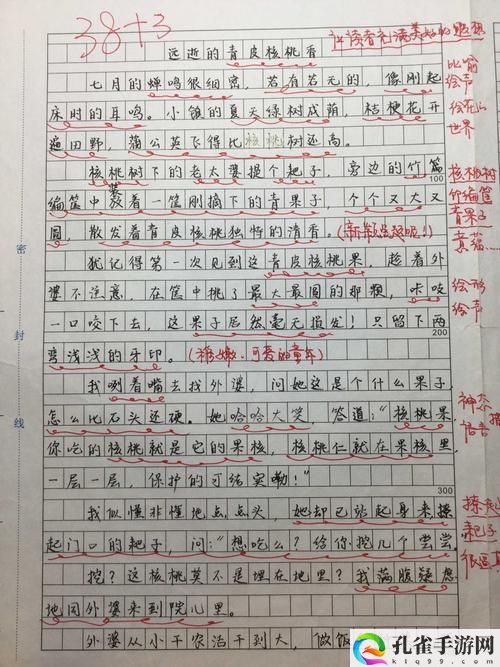 38+3
让读者充满美好的遐想
远逝的青皮核桃香
七月的蝉鸣很细密，若有若无的，像刚起
床时的耳鸣。小镇的夏天绿树成荫，桔梗花开
遍田野，蒲公英飞得比核桃树还高。
比喻
绘声
世界
核桃树下的老太婆摸个耙子，旁边的竹篇
100
编筐中装着一筐刚摘下的青果子，个个又大又
圆，散发着青皮核桃独特的清香。
核桃树
竹编筐
青果子
犹记得第一次见到这青皮核桃果，趁着外
婆不注意，在筐中挑了最大最圆的那颗，咔吱
一口咬下去，这果子居然毫无损发！只留下两
弯浅浅的牙印。（稚嫩、可爱的童年）
绘形
绘声
我咧着嘴去找外婆，问她这是个什么果子，
怎么比石头还硬。她哈哈大笑，答道：“核桃果，
你吃的核桃就是它的果核，核桃仁就在果核里，
一层一层，保护的可结实嘞！”
神态
300
我似懂非懂地点点头，她却已站起身来撩
起门口的耙子，问：“想吃么？给你挖几个尝尝。
耙子
挖？这核桃莫不是埋在地里？我满腹疑惑
地同外婆来到院儿里。
外婆从小干农活干到大，做饭
密
封
线
孔雀手游网
klq999.com